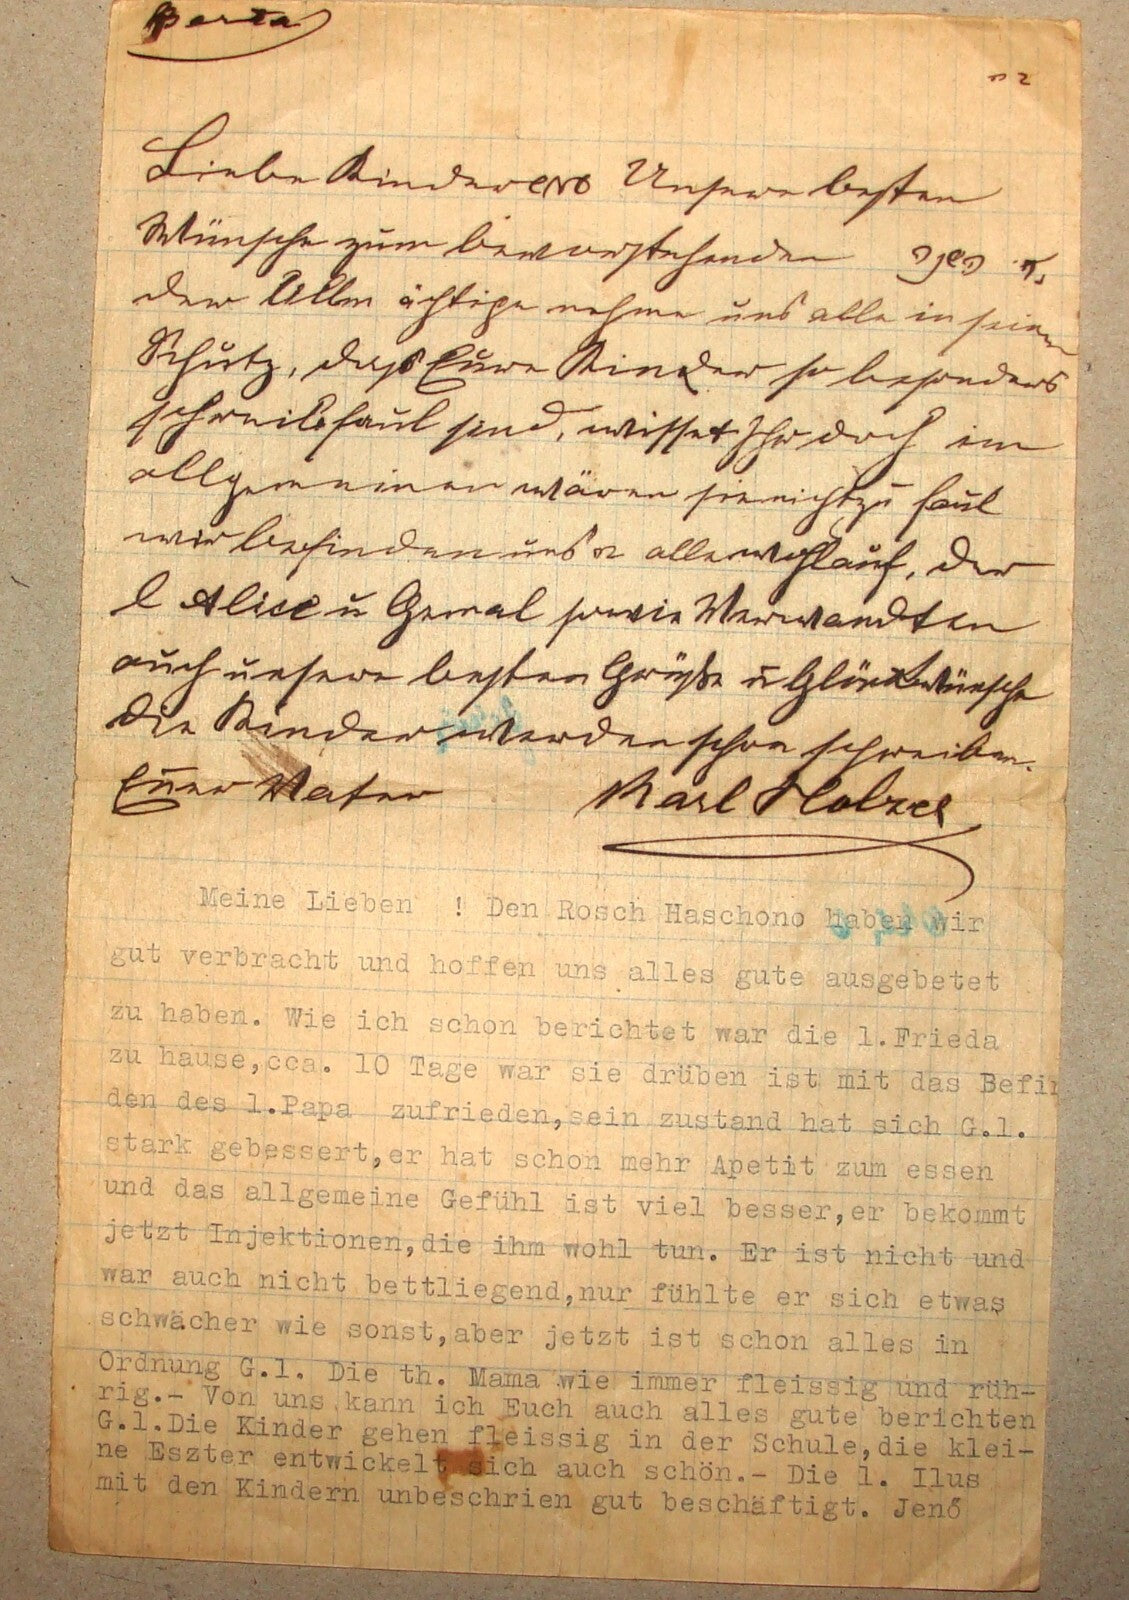 Berta
Liebe Kinder Unsere besten
Wünsche zum bevorstehenden
der Allmächtige nehme uns alle in seinen
Schutz, dass Eure Kinder so besonders
schreibfaul sind, wisset Ihr doch im
allgemeinen wären sie nicht zu faul
wir befinden uns alle wohlauf, der
l Alice u Gemal sowie Verwandten
auch unsere besten Grüße u Glückwünsche
die Kinder werden schon schreiben.
Euer Vater Karl Holzel
Meine Lieben ! Den Rosch Haschono haben wir
gut verbracht und hoffen uns alles gute ausgebetet
zu haben. Wie ich schon berichtet war die l.Frieda
zu hause,cca. 10 Tage war sie drüben ist mit das Befin
den des l.Papa zufrieden,sein zustand hat sich G.l.
stark gebessert,er hat schon mehr Apetit zum essen
und das allgemeine Gefühl ist viel besser,er bekommt
jetzt Injektionen,die ihm wohl tun. Er ist nicht und
war auch nicht bettliegend,nur fühlte er sich etwas
schwächer wie sonst,aber jetzt ist schon alles in
Ordnung G.l. Die th. Mama wie immer fleissig und rüh-
rig.- Von uns kann ich Euch auch alles gute berichten
G.l.Die Kinder gehen fleissig in der Schule,die klei-
ne Eszter entwickelt sich auch schön.- Die l. Ilus
mit den Kindern unbeschrien gut beschäftigt. Jenő